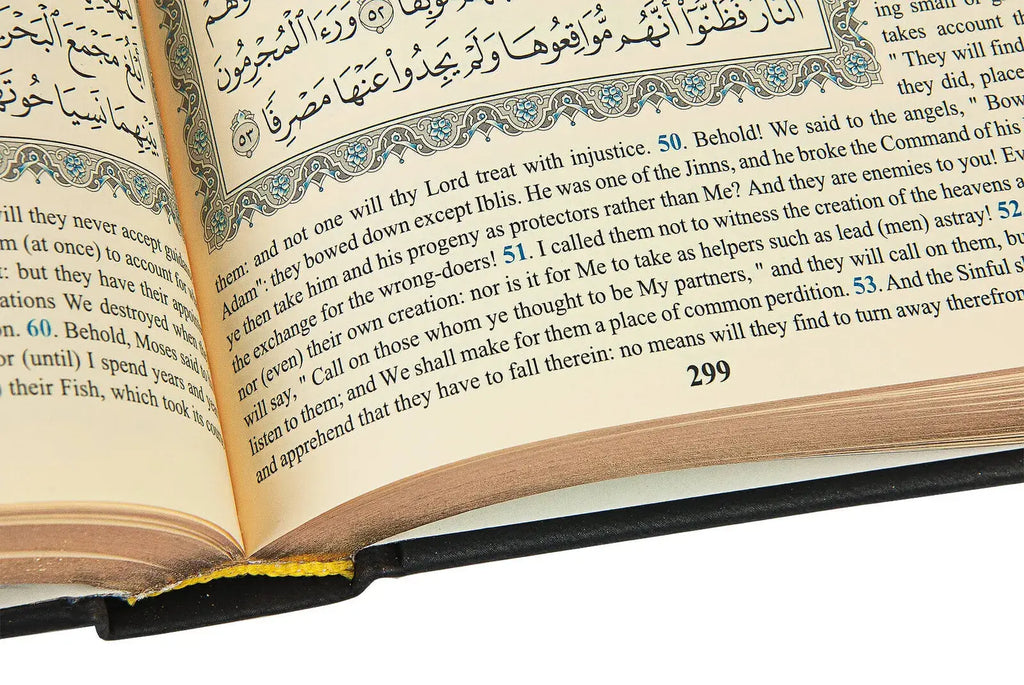 أَبْلُغَ مَجْمَعَ
بَيْنِهِمَا نَسِيَا حُوتَهُمَا
will they never accept guidance
(at once) to account for
but they have their
We destroyed when
60. Behold, Moses said to
or (until) I spend years and
their Fish, which took its
وَرَءَا الْمُجْرِمُونَ
النَّارَ فَظَنُّوا أَنَّهُم مُّوَاقِعُوهَا وَلَمْ يَجِدُوا عَنْهَا مَصْرِفًا ٥٣
ing small or
takes account
" They will find
they did,
them: and not one will thy Lord treat with injustice. 50. Behold! We said to the angels, " Bow
Adam": they bowed down except Iblis. He was one of the Jinns, and he broke the Command of his
ye then take him and his progeny as protectors rather than Me? And they are enemies to you!
the exchange for the wrong-doers! 51. I called them not to witness the creation of the heavens
nor (even) their own creation: nor is it for Me to take as helpers such as lead (men) astray! 52
will say, " Call on those whom ye thought to be My partners, " and they will call on them,
listen to them; and We shall make for them a place of common perdition. 53. And the Sinful
and apprehend that they have to fall therein: no means will they find to turn away
299